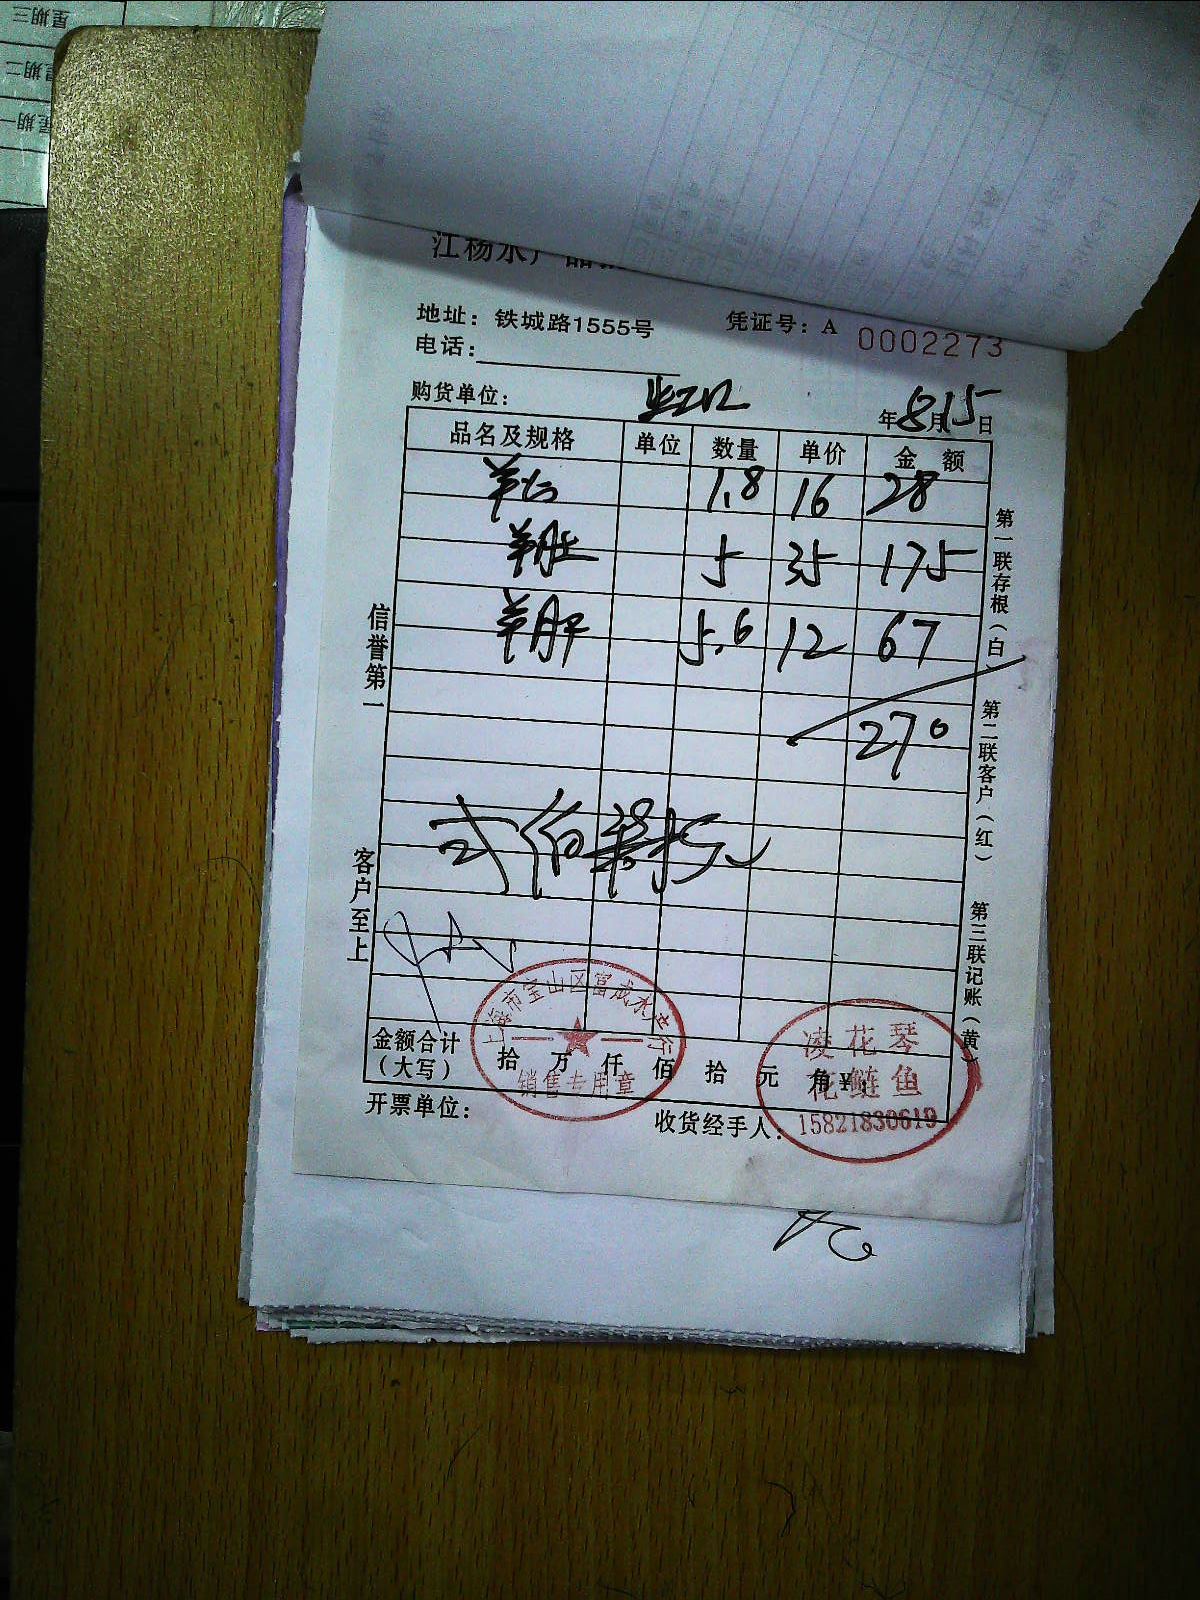 星期三
星期二
星期一
江杨水产品
地址：铁城路1555号
凭证号：A 0002273
电话：
购货单位：
年8月15日
品名及规格 单位 数量 单价 金额
1.8 16 28
羊肚 5 35 175
羊肝 5.6 12 67
270
贰佰柒拾元
金额合计（大写） 拾 万 仟 佰 拾 元 角 ¥
开票单位：
收货经手人：
信誉第一 客户至上
第一联存根（白） 第二联客户（红） 第三联记账（黄）
上海市宝山区富成水产行
销售专用章
凌花琴
花鲢鱼
15821830619